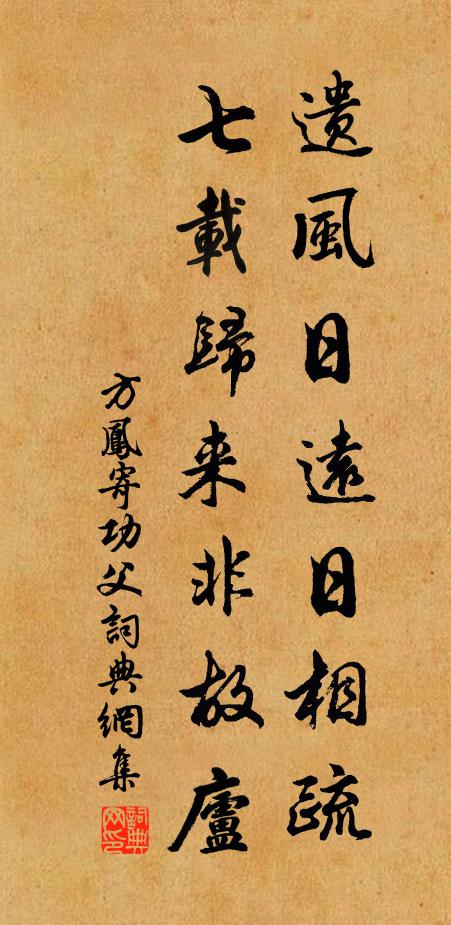 遺風日遠日相疏
七載歸来非故廬
方鳳寄功父詞典網集
詞典网印